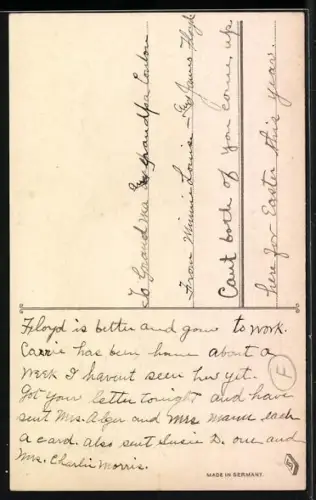 To Grandma & Grandpa
From Minnie Louise – & James Floyd
Cant both of you come up
here for Easter this year.
Floyd is better and gone to work.
Carrie has been home about a
week I havent seen her yet.
Got your letter tonight and have
sent Mrs. Alger and Mrs Mann each
a card. also sent Susie D. one and
Mrs. Charlie Morris.
F
MADE IN GERMANY.